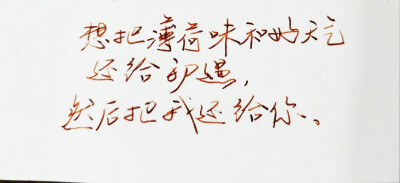 想把薄荷味和好天气
还给初遇，
然后把我还给你、